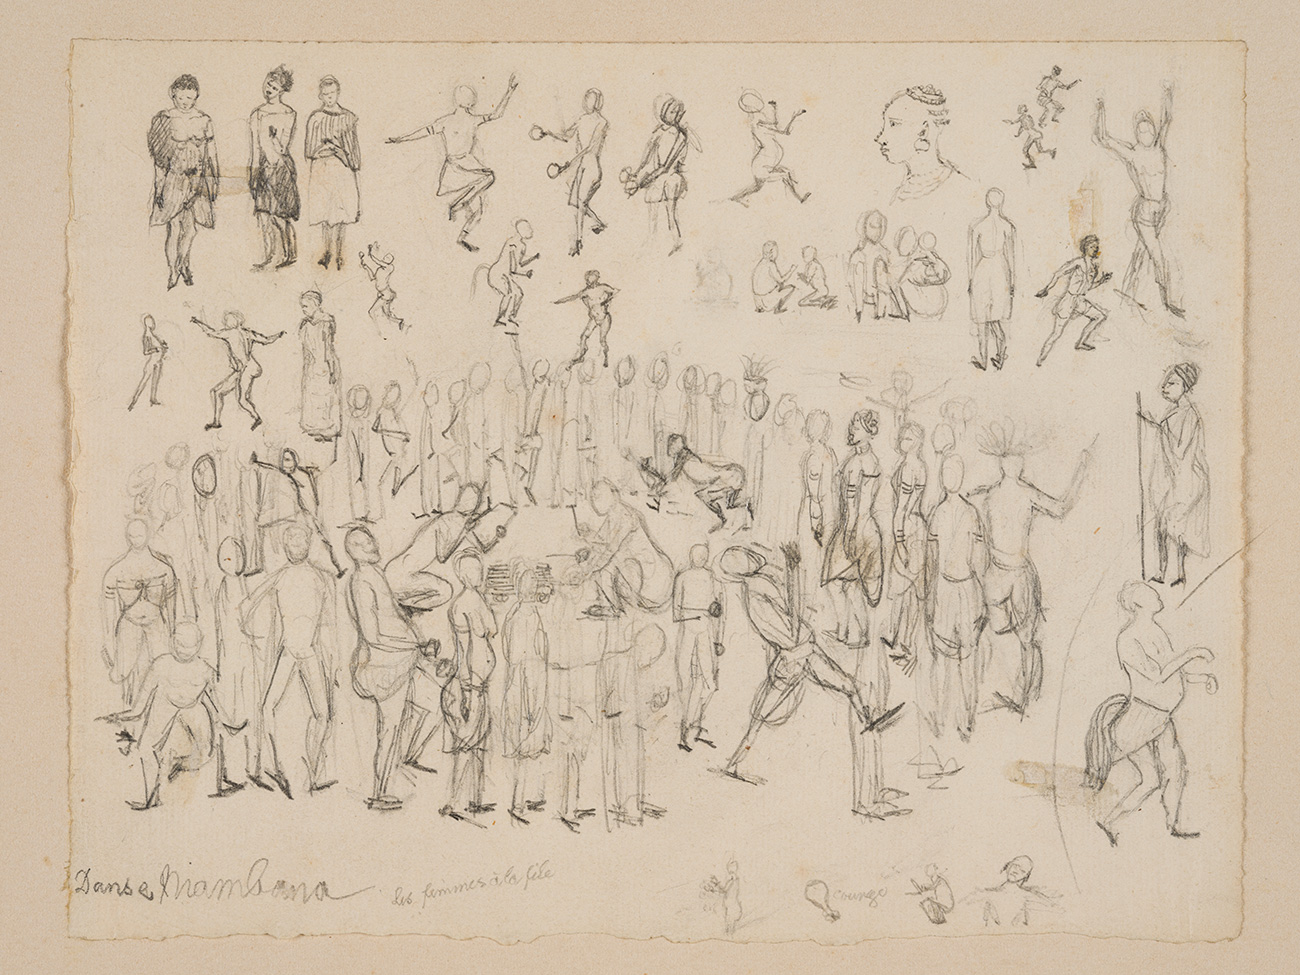 Danse Niambana
les femmes à la file
counge